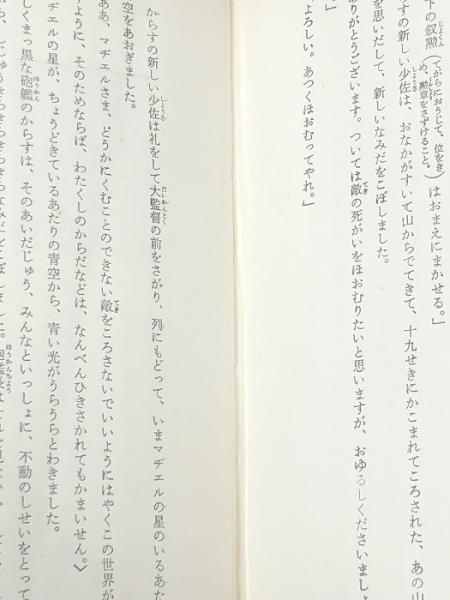 下の叙勲(てがらにおうじて、位をきめ、勲章をさずけること。)はおまえにまかせる。」
らすの新しい少佐は、おなかがすいて山からでてきて、十九せきにかこまれてころされた、あの山
を思いだして、新しいなみだをこぼしました。
ありがとうございます。ついては敵の死がいをほおむりたいと思いますが、おゆるしくださいましょ
よろしい。あつくほおむってやれ。」
からすの新しい少佐は礼をして大監督の前をさがり、列にもどって、いまマヂエルの星のいるあた
空をあおぎました。
ああ、マヂエルさま、どうかにくむことのできない敵をころさないでいいようにはやくこの世界が
ように、そのためならば、わたくしのからだなどは、なんべんひきさかれてもかまいません。〉
ヂエルの星が、ちょうどきているあたりの青空から、青い光がうらうらとわきました。
しくまっ黒な砲艦のからすは、そのあいだじゅう、みんなといっしょに、不動のしせいをとって